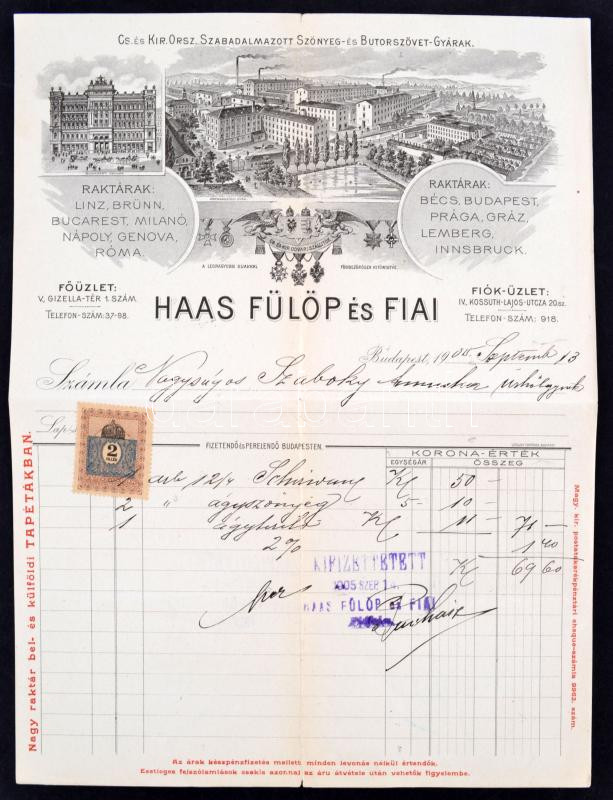 Cs. és Kir. Orsz. Szabadalmazott Szőnyeg- és Butorszövet-Gyárak.
RAKTÁRAK:
LINZ, BRÜNN,
BUCAREST, MILANÓ,
NÁPOLY, GENOVA,
RÓMA.
RAKTÁRAK:
BÉCS, BUDAPEST,
PRÁGA, GRÁZ,
LEMBERG,
INNSBRUCK.
A LEGNAGYOBB DIJAKKAL
FŐÜZLET:
V, GIZELLA-TÉR 1. SZÁM.
TELEFON-SZÁM: 37-98.
HAAS FÜLÖP ÉS FIAI
FIÓK-ÜZLET:
IV, KOSSUTH-LAJOS-UTCZA 20 sz.
TELEFON-SZÁM: 918.
Budapest, 190 September 13
Számla Nagyságos Szaboky
Lap
2
FIZETENDŐ ÉS PERELENDŐ BUDAPESTEN.
KORONA-ÉRTÉK
EGYSÉGÁR ÖSSZEG
1 drb 12/4 Schirwan K 50 –
2 " ágyszőnyeg 5 - 10 –
1 K 11 – 71 –
2% 1 40
K 69 60
KIFIZETTETETT
1905 SZEP 1
HAAS FÜLÖP ÉS FIAI
Nagy raktár bel- és külföldi TAPÉTÁKBAN.
Magy. kir. postatakarékpénztári cheque-számla 9963. szám.
Az árak készpénzfizetés mellett minden levonás nélkül értendők.
Esetleges felszólamlások csakis azonnal az áru átvétele után vehetők figyelembe.